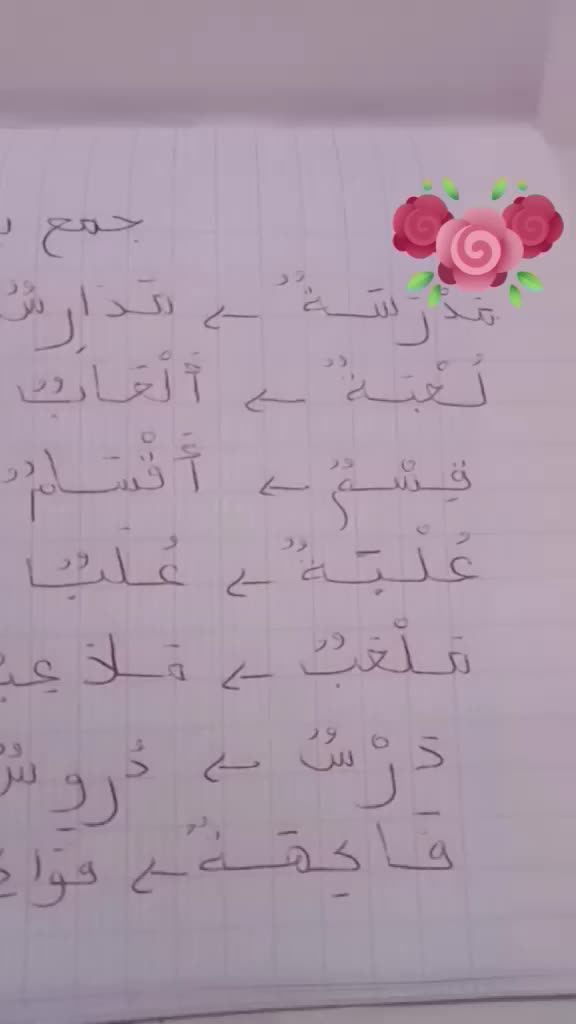 جمع
مَدْرَسَةٌ ← مَدَارِسُ
لُعْبَةٌ ← أَلْعَابٌ
قِسْمٌ ← أَقْسَامٌ
عُلْبَةٌ ← عُلَبٌ
مَلْعَبٌ ← مَلَاعِبُ
دَرْسٌ ← دُرُوسٌ
فَاكِهَةٌ ←